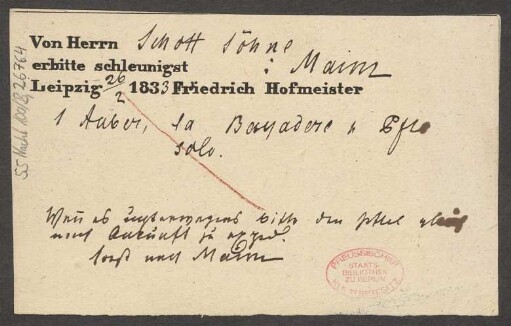 Von Herrn Schott Söhne
erbitte schleunigst : Mainz
Leipzig 26/2 1833 Friedrich Hofmeister
1 Auber, la Bayadere p Pfte
solo.
Wenn es bitte den Zettel gleich
nach Ankunft zu exped.
sonst nach Mainz
PREUSSISCHER
STAATS-
BIBLIOTHEK
ZU BERLIN
55 Nachl 100/B, 26764